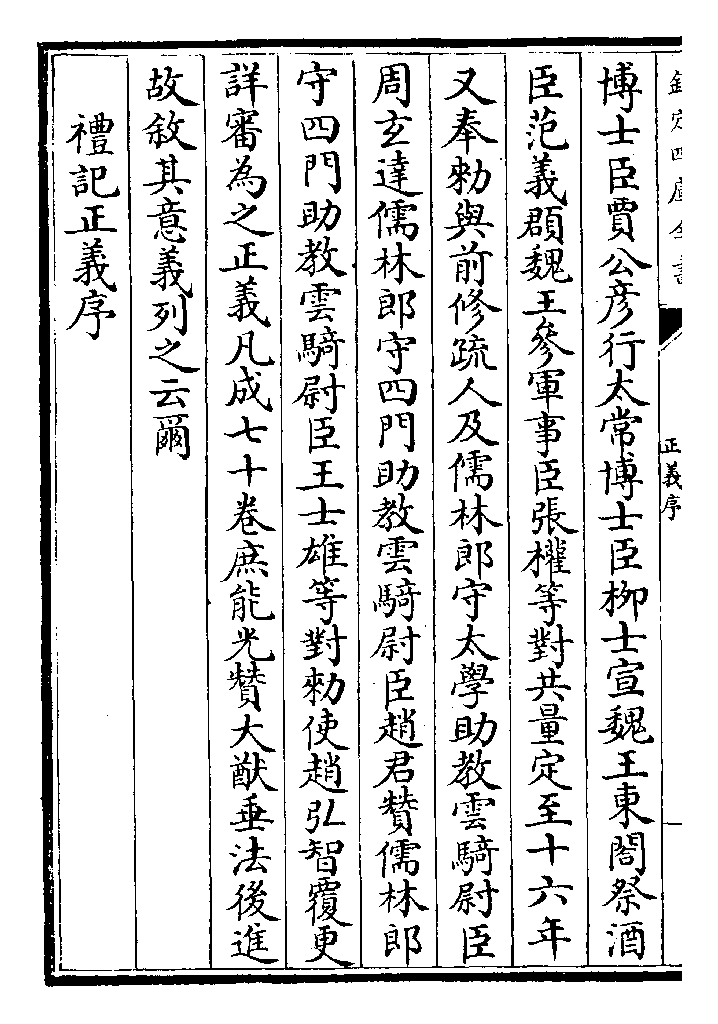 欽定四庫全書
正義序
博士臣賈公彥行太常博士臣栁士宣魏王東閤祭酒
臣范義頵魏王參軍事臣張權等對共量定至十六年
又奉勅與前修疏人及儒林郎守太學助教雲騎尉臣
周玄達儒林郎守四門助教雲騎尉臣趙君贊儒林郎
守四門助教雲騎尉臣王士雄等對勅使趙弘智覆更
詳審為之正義凡成七十卷庶能光贊大猷垂法後進
故敘其意義列之云爾
禮記正義序